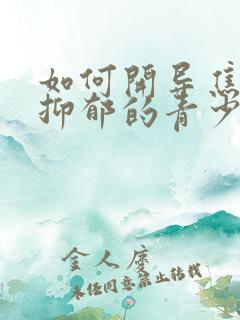 如何開导焦
抑郁的青少
金人慶
未经同意禁止转载